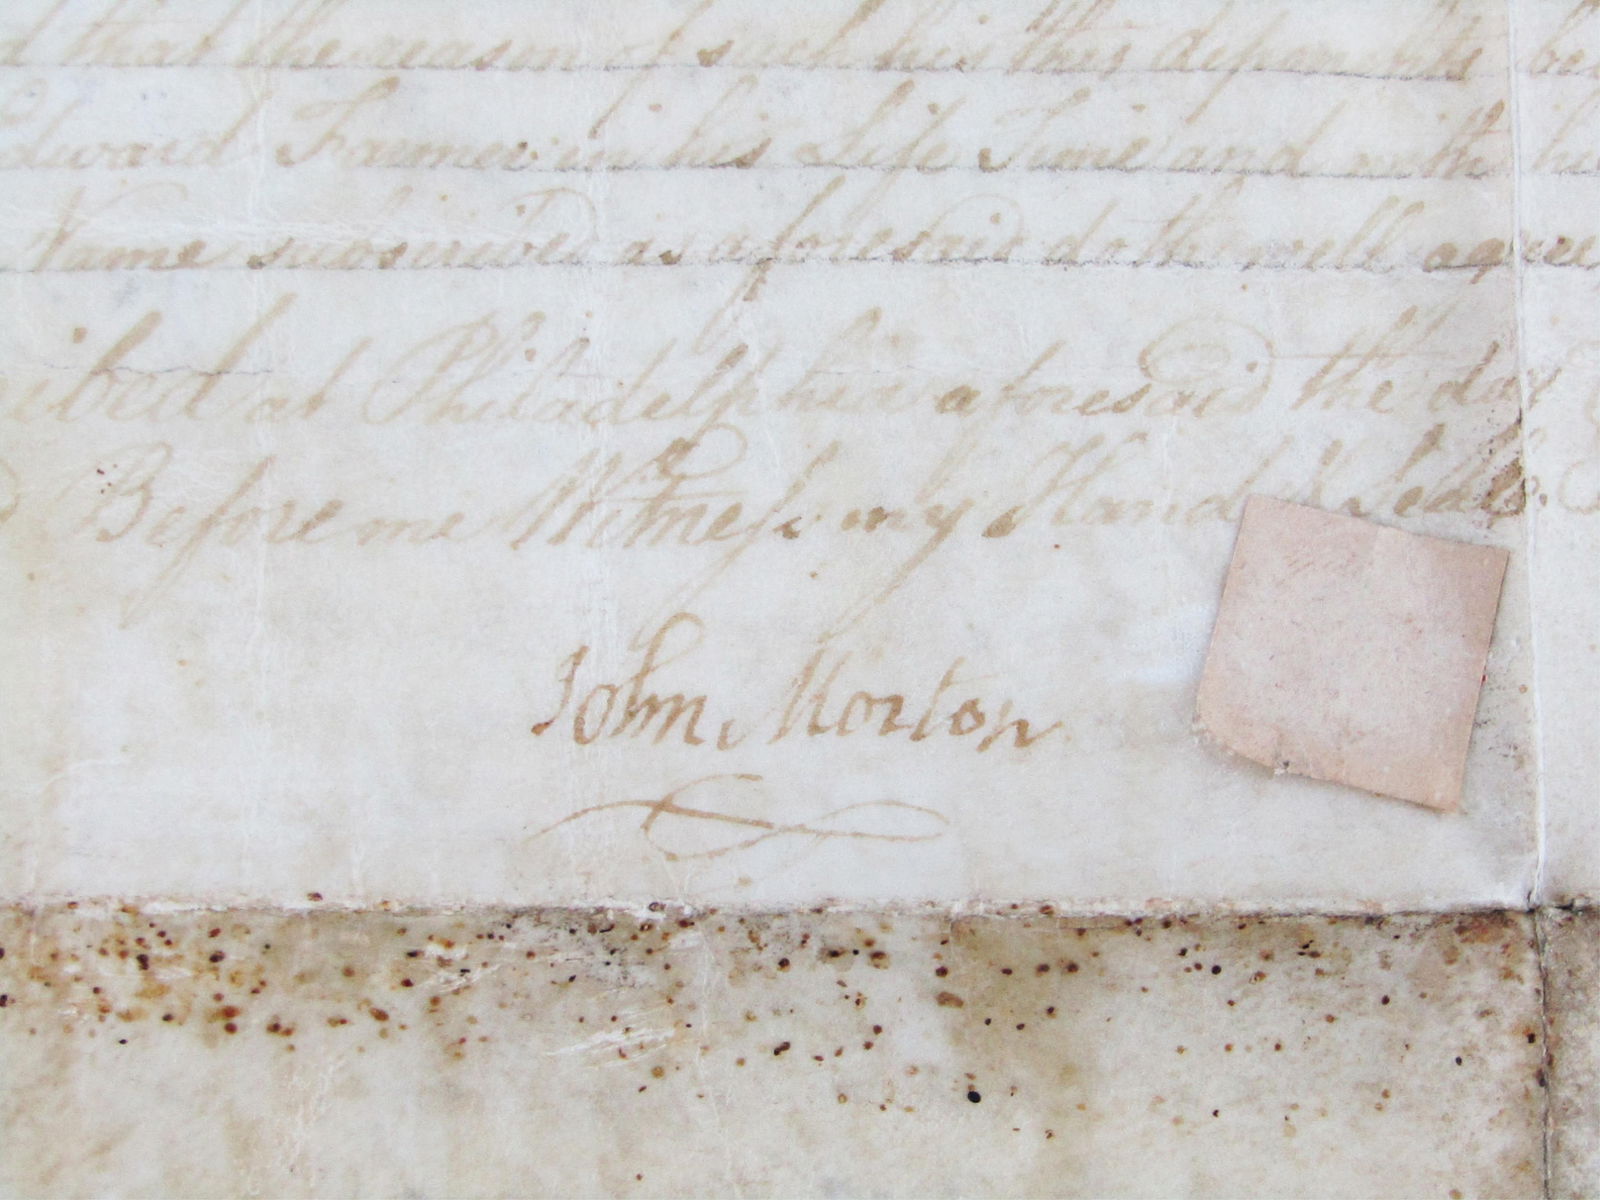 d that the reason of such his this deponents be
Edward Farmer in his Life Time and with hi
Name subscribed as aforesaid doth well agree
ibed at Philadelphia aforesaid the day
Before me Witness my Hand & Seal.
John Morton